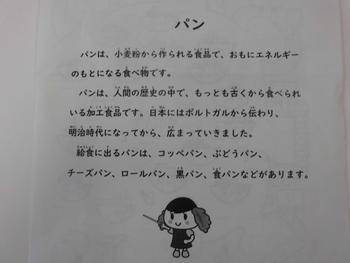 パン
パンは、小麦粉から作られる食品で、おもにエネルギー
のもとになる食べ物です。
パンは、人間の歴史の中で、もっとも古くから食べられ
いる加工食品です。日本にはポルトガルから伝わり、
明治時代になってから、広まっていきました。
給食に出るパンは、コッペパン、ぶどうパン、
チーズパン、ロールパン、黒パン、食パンなどがあります。